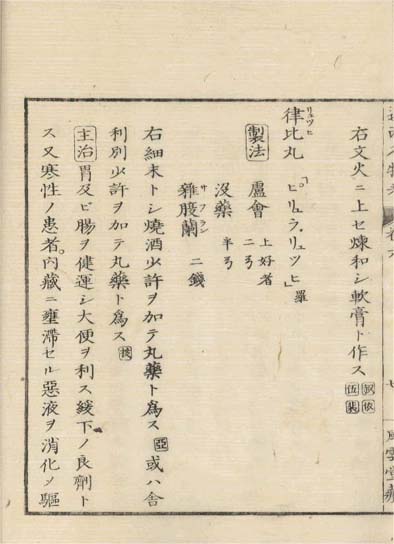 右文火ニ上セ煉和シ軟膏ト作ス
律比丸 「ピリュラ、リュツヒ」羅
リュツヒ
製法 盧會 上好者 二弓
沒藥 半弓
雜腹蘭 二錢
サフラン
右細末トシ燒酒少許ヲ加テ丸藥ト爲ス 亞 或ハ舍
利別少許ヲ加テ丸藥ト爲ス 扶
主治 胃及ビ腸ヲ健運シ大便ヲ利ス緩下ノ良劑ト
ス又寒性ノ患者。内藏ニ壅滯セル惡液ヲ消化シ驅